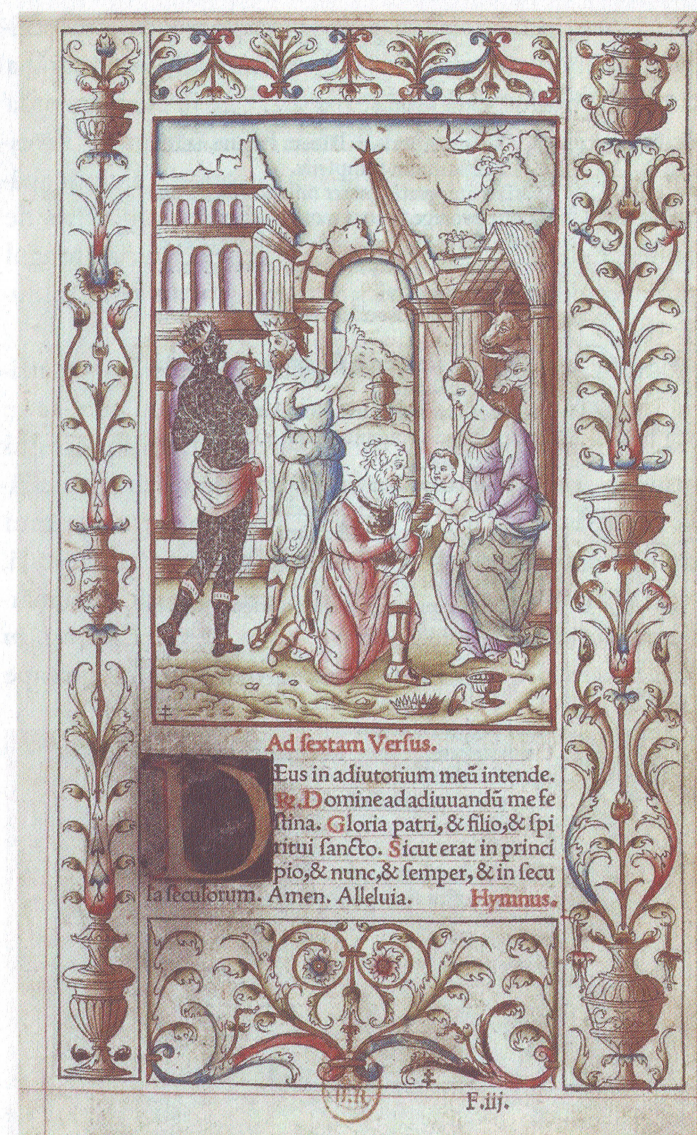 Ad ſextam Verſus.
DEus in adiutorium meũ intende.
℟. Domine ad adiuuandũ me fe
ſtina. Gloria patri, & filio, & ſpi
ritui ſancto. Sicut erat in princi
pio, & nunc, & ſemper, & in ſecu
la ſeculorum. Amen. Alleluia. Hymnus.
F.iij.